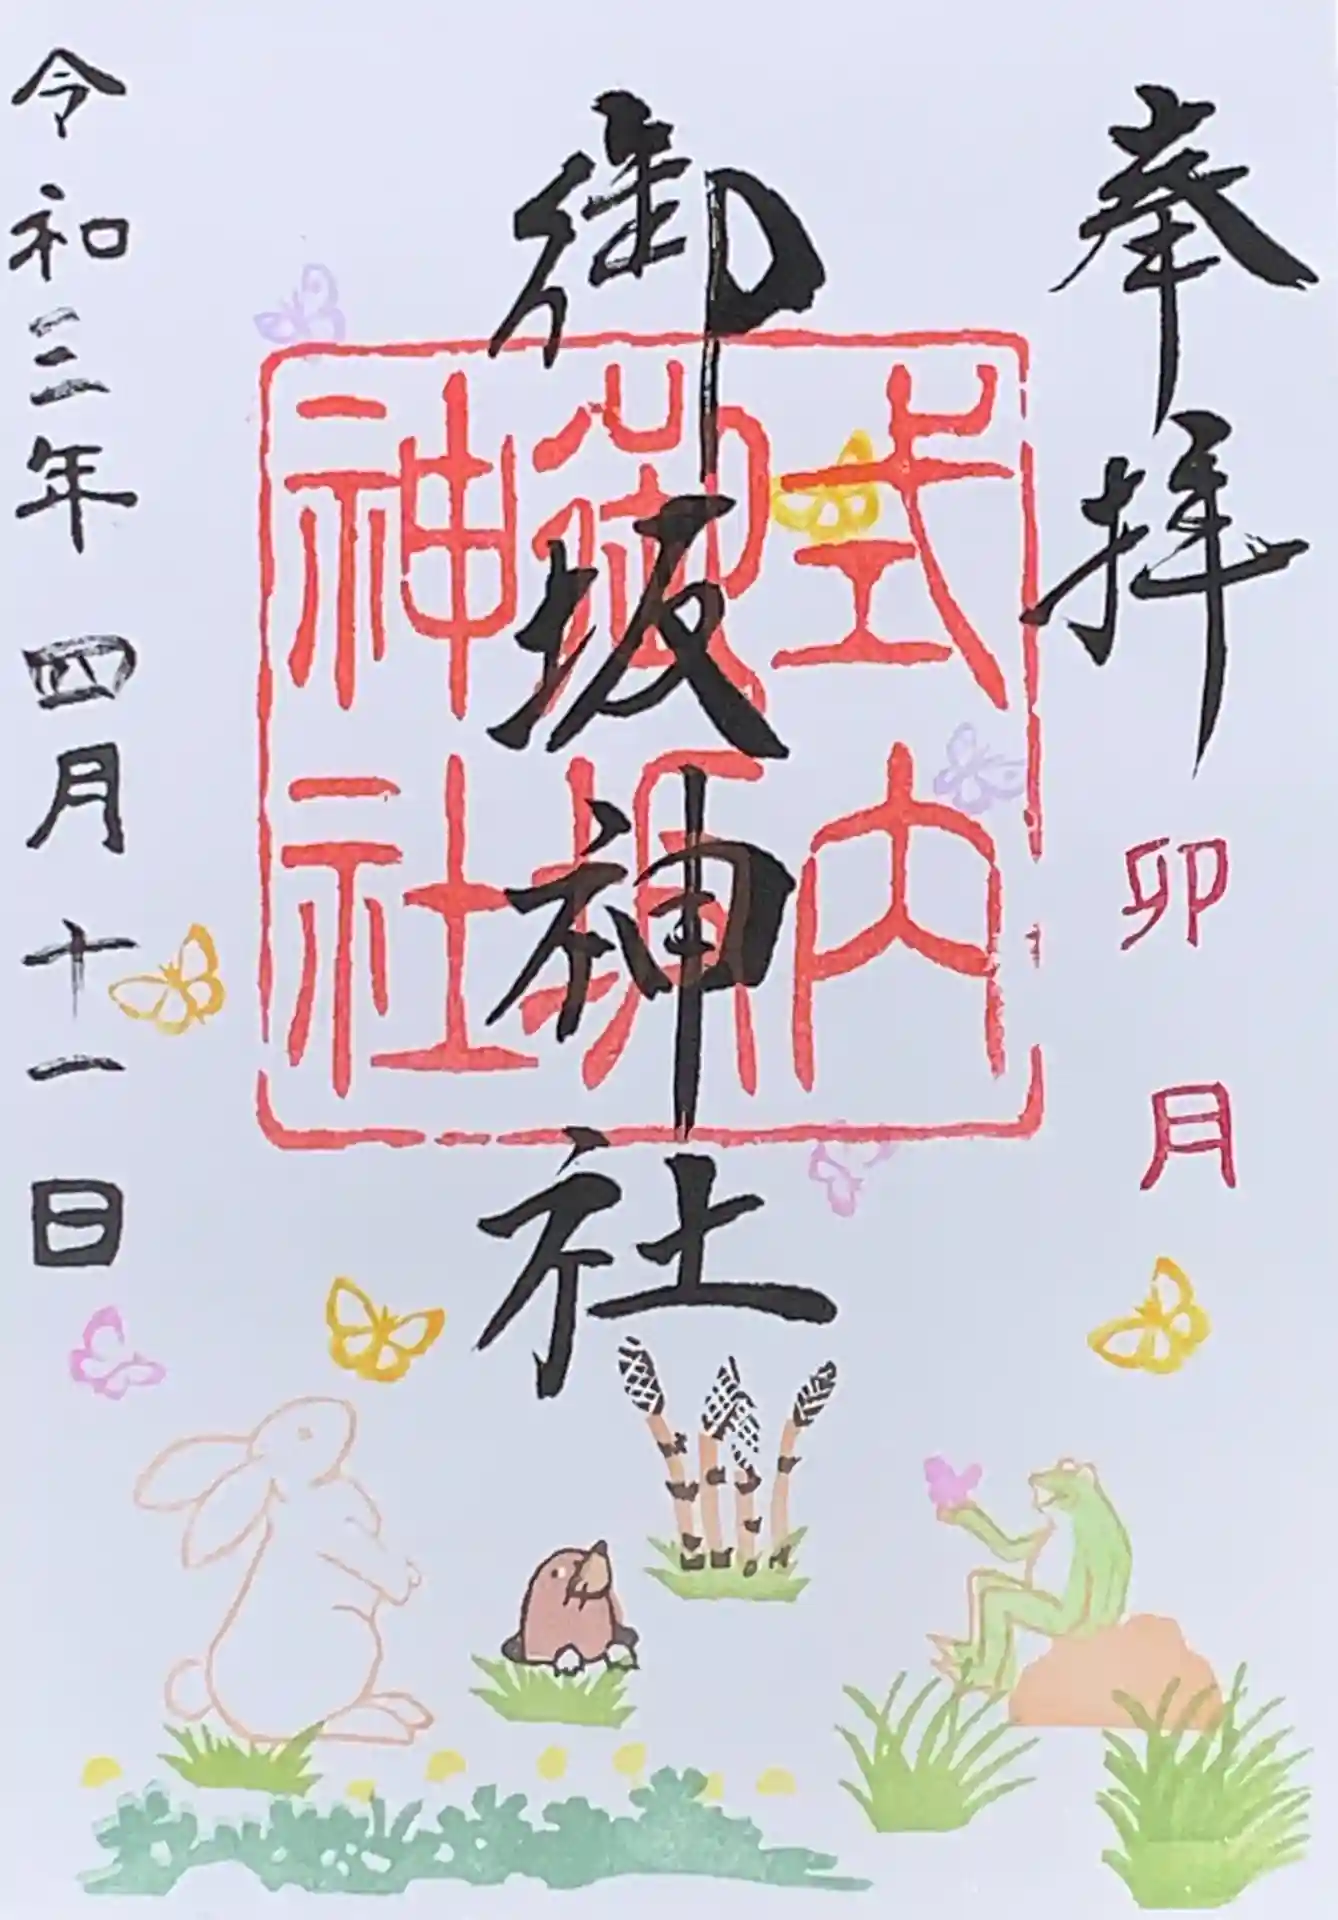 奉拝
卯月
御坂神社
式内
御坂
神社
令和三年四月十一日